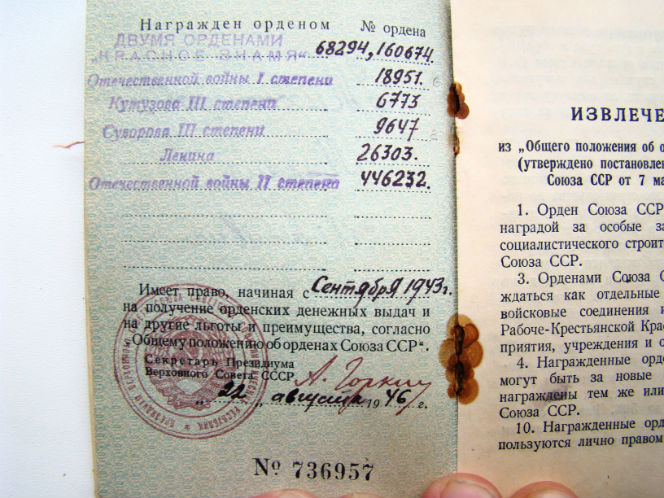 Награжден орденом № ордена
ДВУМЯ ОРДЕНАМИ
„КРАСНОЕ ЗНАМЯ“ 68294, 160674.
Отечественной войны I степени 18951.
Кутузова III степени 6773
Суворова III степени 9647
Ленина 26303.
Отечественной войны II степени 446232.
Имеет право, начиная с Сентября 1943г.
на получение орденских денежных выдач и
на другие льготы и преимущества, согласно
„Общему положению об орденах Союза ССР“.
Секретарь Президиума
Верховного Совета СССР А. Горкин
„ 22 „ августа 1946 г.
№ 736957
ИЗВЛЕЧЕ
из „Общего положения об о
(утверждено постановлен
Союза ССР от 7 ма
1. Орден Союза ССР
наградой за особые за
социалистического строит
Союза ССР.
3. Орденами Союза С
ждаться как отдельные
войсковые соединения и
Рабоче-Крестьянской Кра
приятия, учреждения и о
4. Награжденные орде
могут быть за новые
награждены тем же или
Союза ССР.
10. Награжденные орд
пользуются лично правом